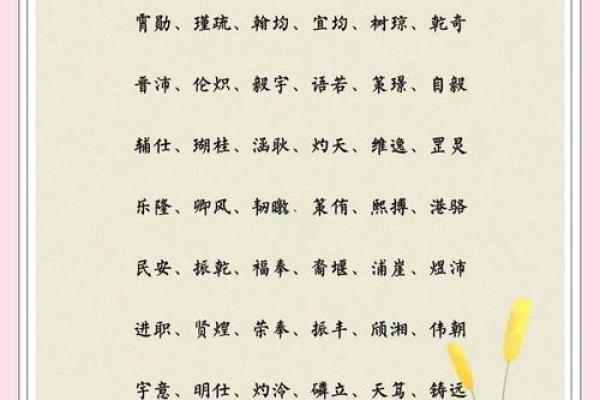 霄勋、瑾琉、翰均、宜均、树琼、乾奇
晋沛、伦炽、毅宇、语若、策璟、自毅
辅仕、瑚桂、涵耿、灼天、维逸、罡炅
乐隆、卿风、韧暾、策侑、熙搏、港骆
民安、振乾、福奉、裔堰、浦崖、煜沛
进职、贤煌、荣奉、振丰、颀湘、伟朝
宇意、明仕、灼泠、磷立、天笃、铸远